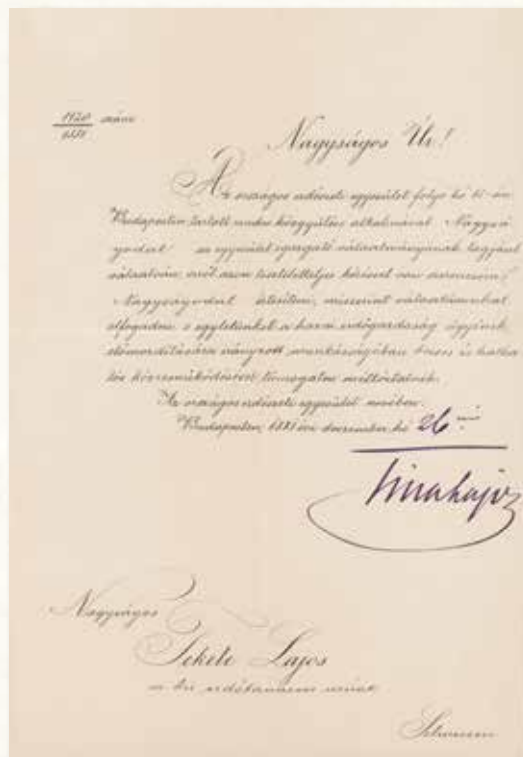 1920 szám
1881
Nagyságos Úr!
Az országos erdészeti egyesület folyó hó 15-én
Budapesten tartott rendes közgyűlése alkalmával Nagysá
godat az egyesület igazgató választmányának tagjává
választván, arról azon tiszteletteljes kéréssel van szerencsém
Nagyságodat értesíteni, miszerint választásunkat
elfogadni s egyletünket a hazai erdőgazdaság ügyének
előmozdítására irányzott munkásságában becses és hatha
tós közreműködésével támogatni méltóztatnék.
Az országos erdészeti egyesület nevében.
Budapesten, 1881 évi december hó 26
Tisza Lajos
Nagyságos
Fekete Lajos
m. kir. erdőtanácsos úrnak